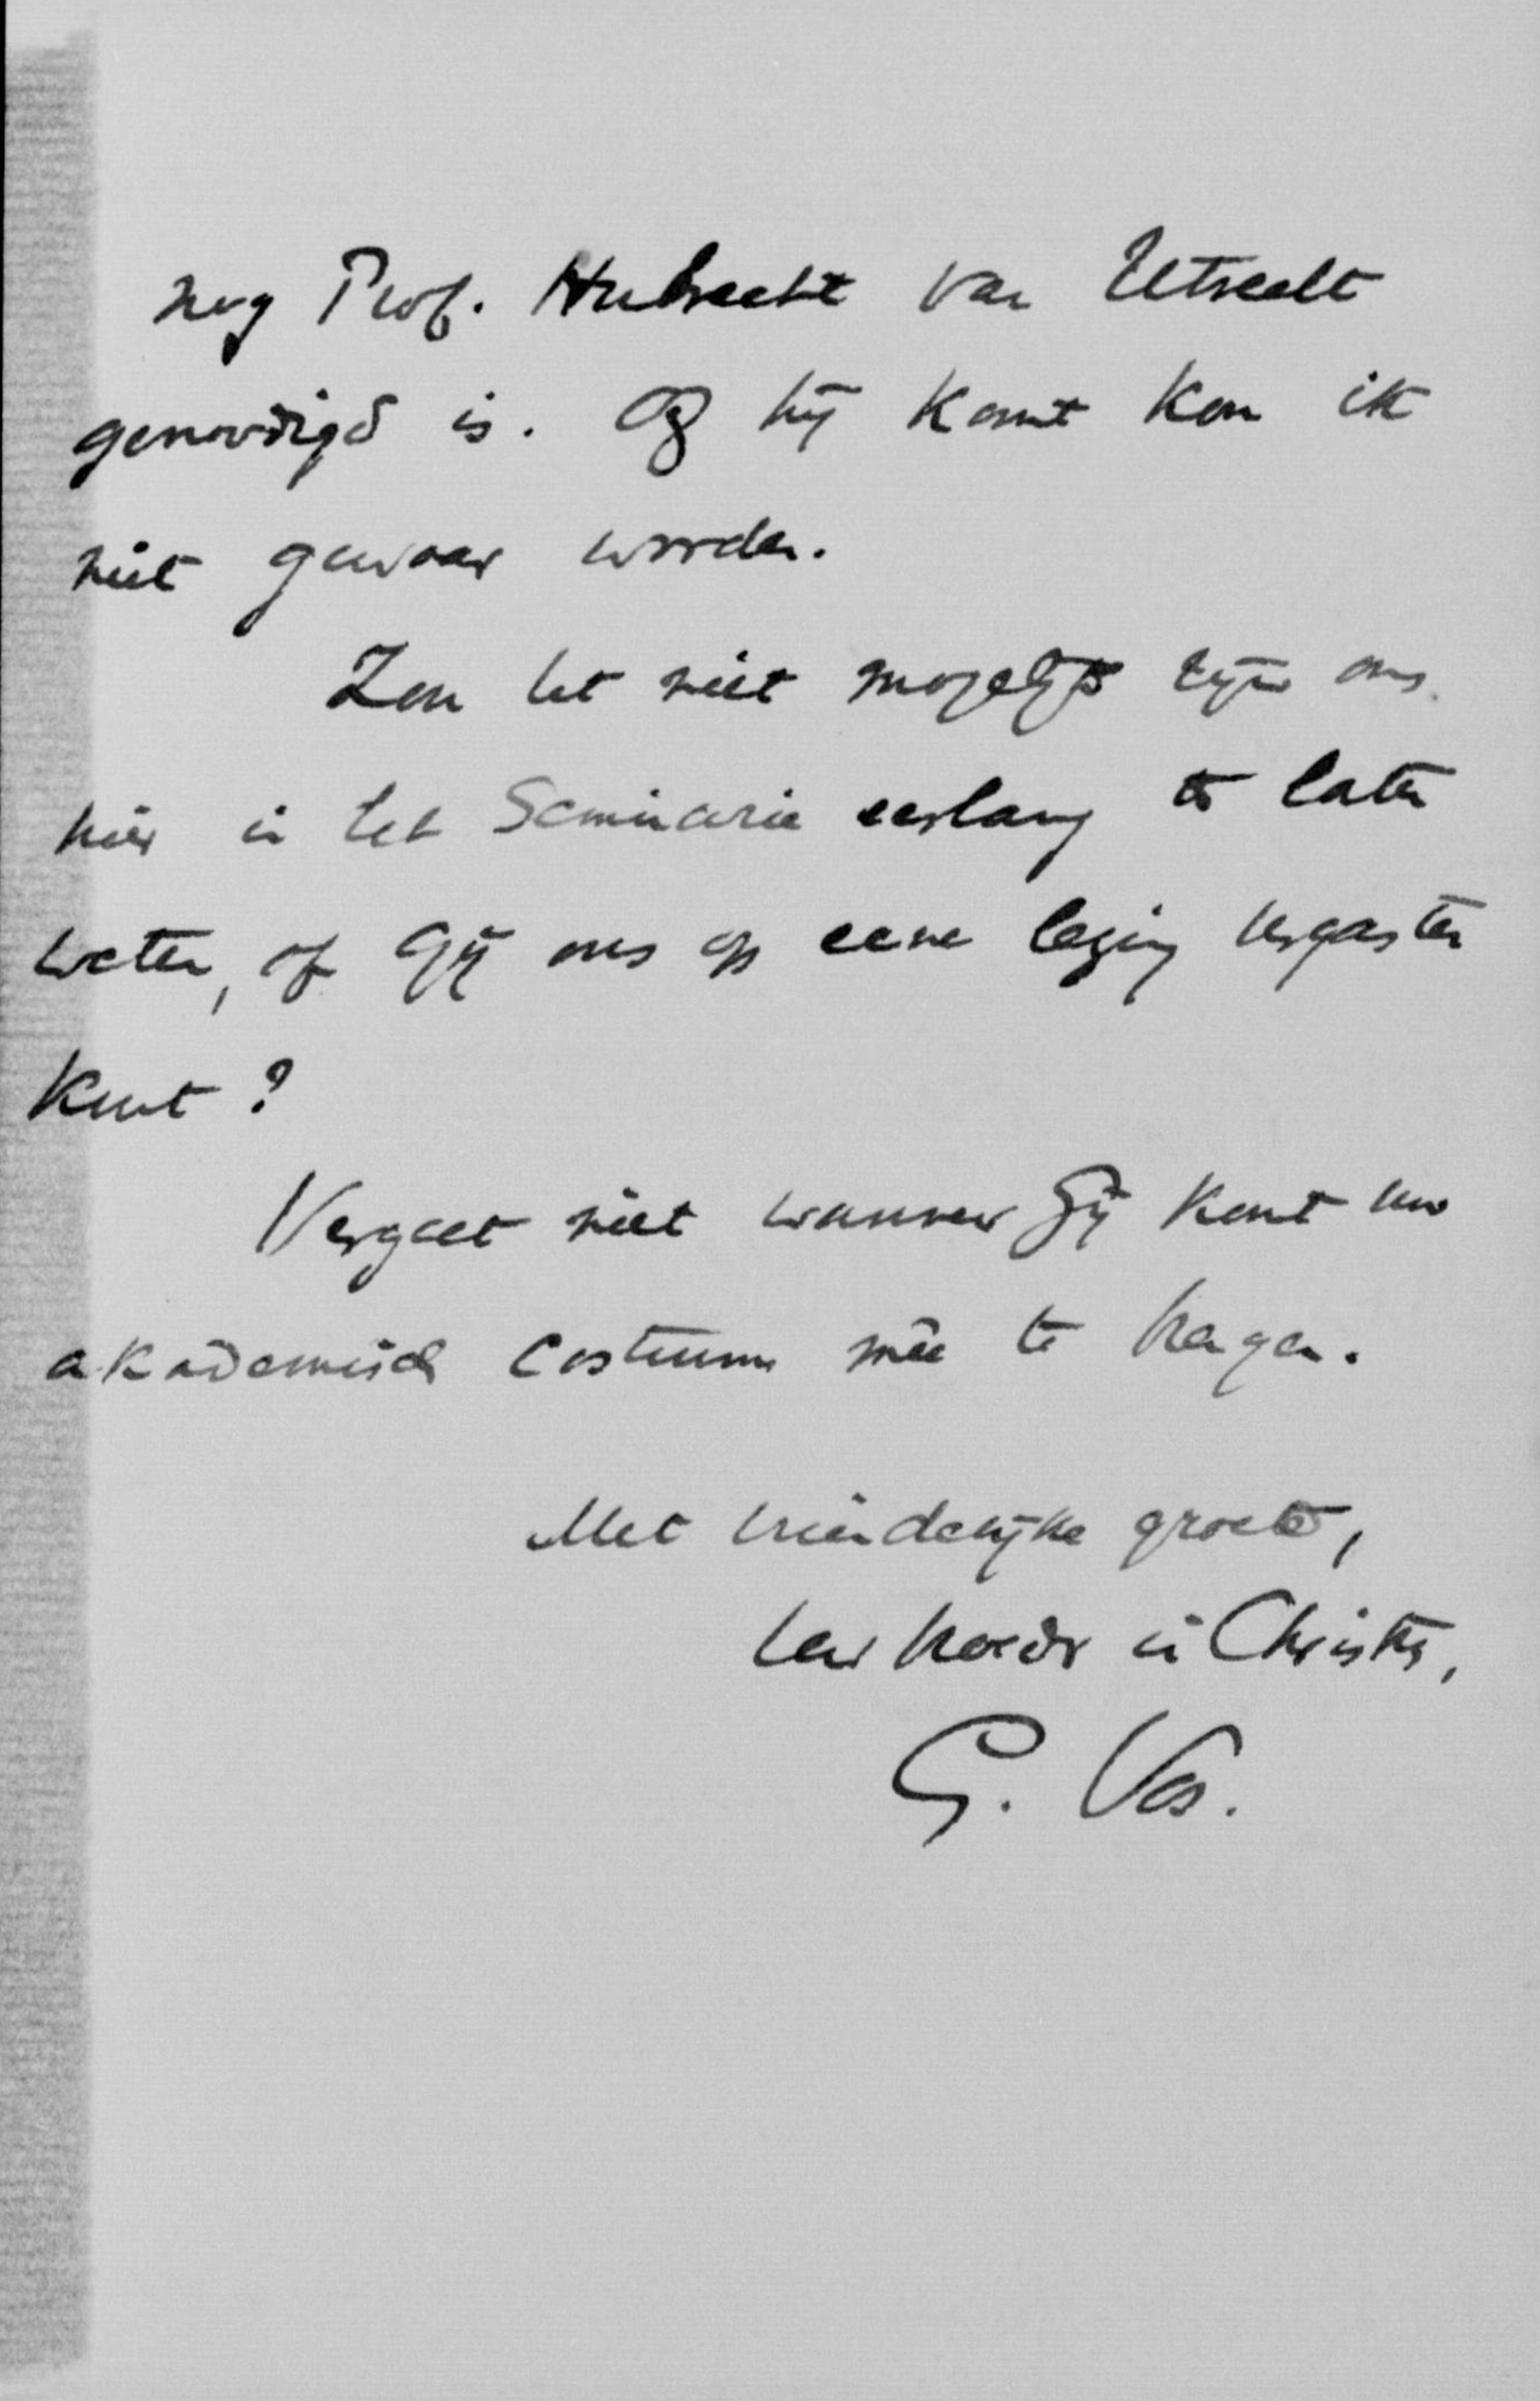 nog Prof. Hubrecht van Utrecht
genoodigd is. Of hij komt kon ik
niet gewaar worden.
Zou het niet mogelijk zijn ons
hier in het Seminarie eerlang te laten
weten, of Gij ons op eene lezing vergasten
kunt?
Vergeet niet wanneer Gij komt uw
akademisch costuum mêe te brengen.
Met vriendelijke groete,
Uw broeder in Christus,
G. Vos.